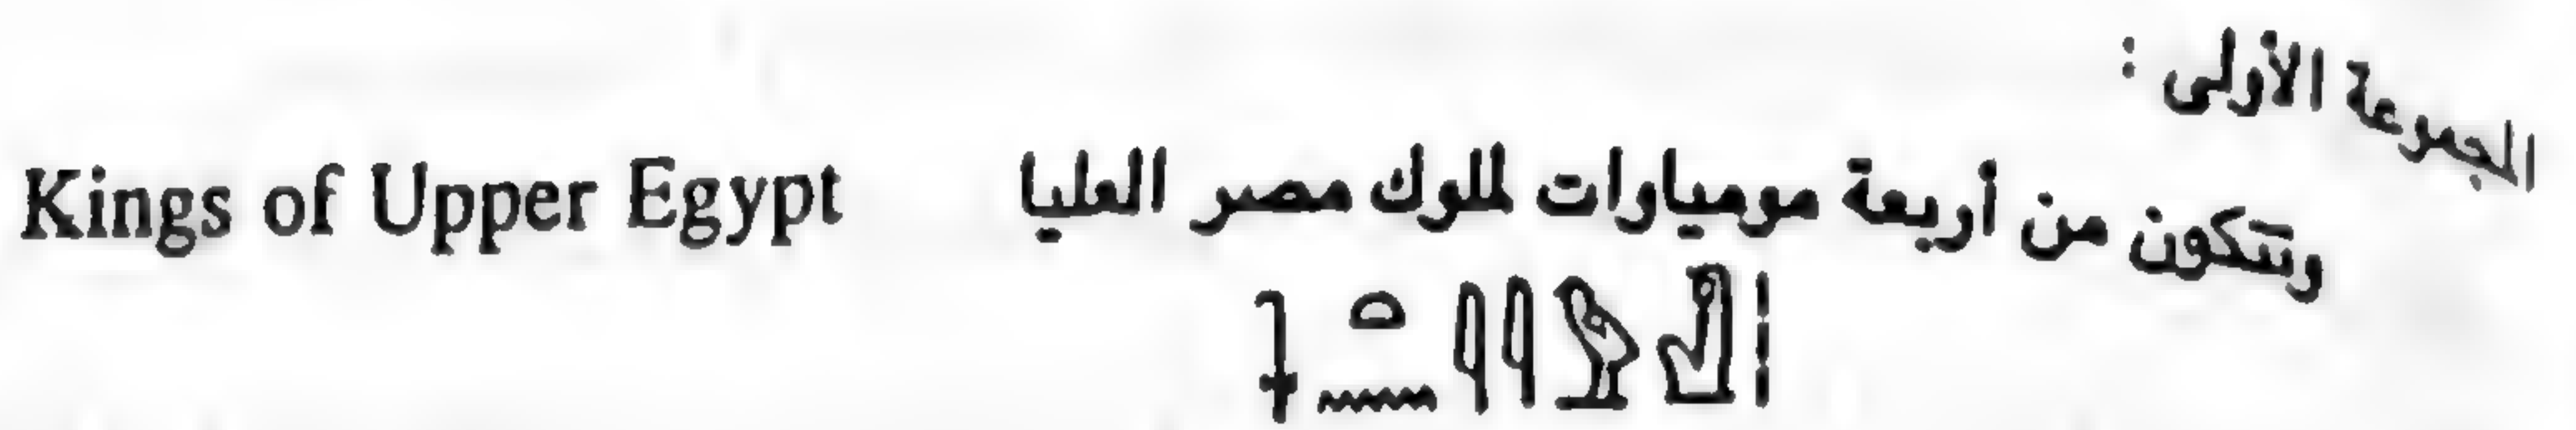 المجموعة الأولى :
وتتكون من أربعة مومياوات لملوك مصر العليا Kings of Upper Egypt